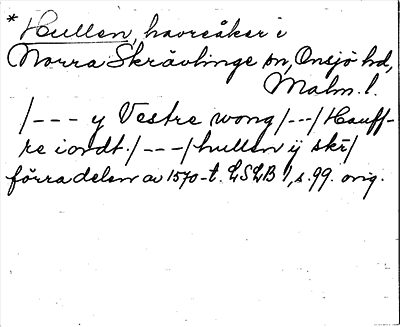 * Hullen, havreåker i
Norra Skrävlinge sn, Onsjö hd,
Malm. l.
/--- y Vestre wong /---/ Hauff-
re iordt. /---/ hullen ij skr/
förra delen av 1570-t. LSLB 1, s. 99. orig.